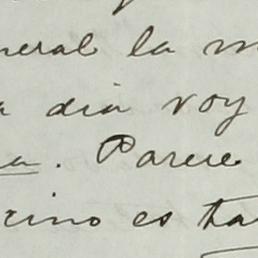 neral la m
a dia voy
a. Parece
rino es ta